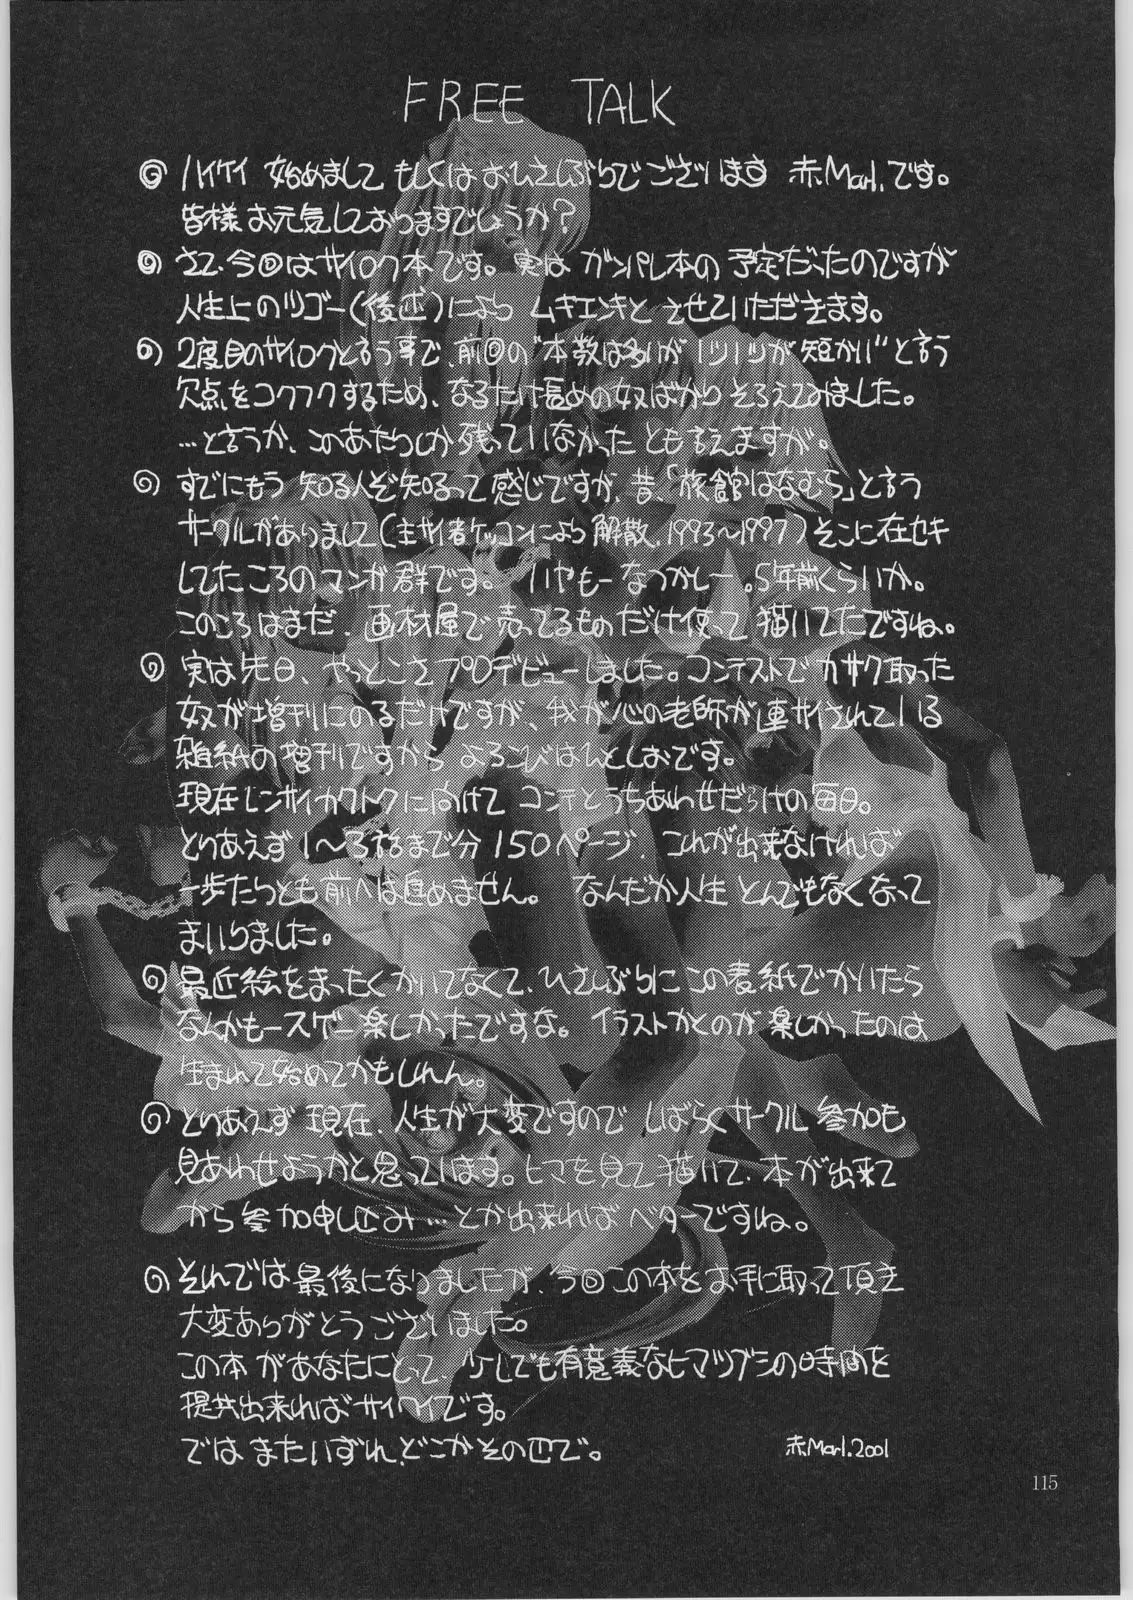 FREE TALK
ハイケイ 始めまして もしくはおひさしぶりでございます 赤Marl.です。
皆様お元気しておりますでしょうか?
さて、今回はサイロク本です。実は ガンパレ本の予定だったのですが
人生上のツゴー(後述)により ムキエンキと させていただきます。
2度目のサイロクと言う事で、前回の"本数は多いが1ツ1ツが短かい"と言う
欠点をコクフクするため、なるたけ長めの奴ばかりそろえてみました。
…と言うか、このあたりしか残っていなかったとも言えますが。
すでにもう 知る人ぞ知るって感じですが、昔、「旅館はなむら」と言う
サークルがありまして(主サイ者ケッコンにより解散、1993〜1997)そこに在セキ
してたころのマンガ群です。 いやもーなつかしー。5年前くらいか。
このころはまだ、画材屋で売ってるものだけ使って描いてたですね。
実は先日、やっとこさプロデビューしました。コンテストでカサク取った
奴が増刊にのるだけですが、我が心の老師が連サイされている
雑紙の増刊ですから よろこびはんとしおです。
現在レンサイカクトクに向けて コンテとうちあわせだらけの毎日。
とりあえず1〜3話まで分150ページ、これが出来なければ
一歩たりとも前へは進めません。 なんだか人生とんでもなくなって
まいりました。
最近絵をまったくかいてなくて、ひさしぶりにこの表紙でかいたら
なんかもースゲー楽しかったですな。 イラストかくのが楽しかったのは
生まれて始めてかもしれん。
とりあえず現在、人生が大変ですので しばらくサークル参加も
見あわせようかと思っています。ヒマを見て描いて、本が出来て
から参加申し込み…とか出来ればベターですね。
それでは最後になりましたが、今回この本をお手に取って頂き
大変ありがとうございました。
この本があなたにとって、少しでも有意義なヒマツブシの時間を
提供出来ればサイワイです。
では またいずれ、どこかその辺で。
赤Marl.2001
115